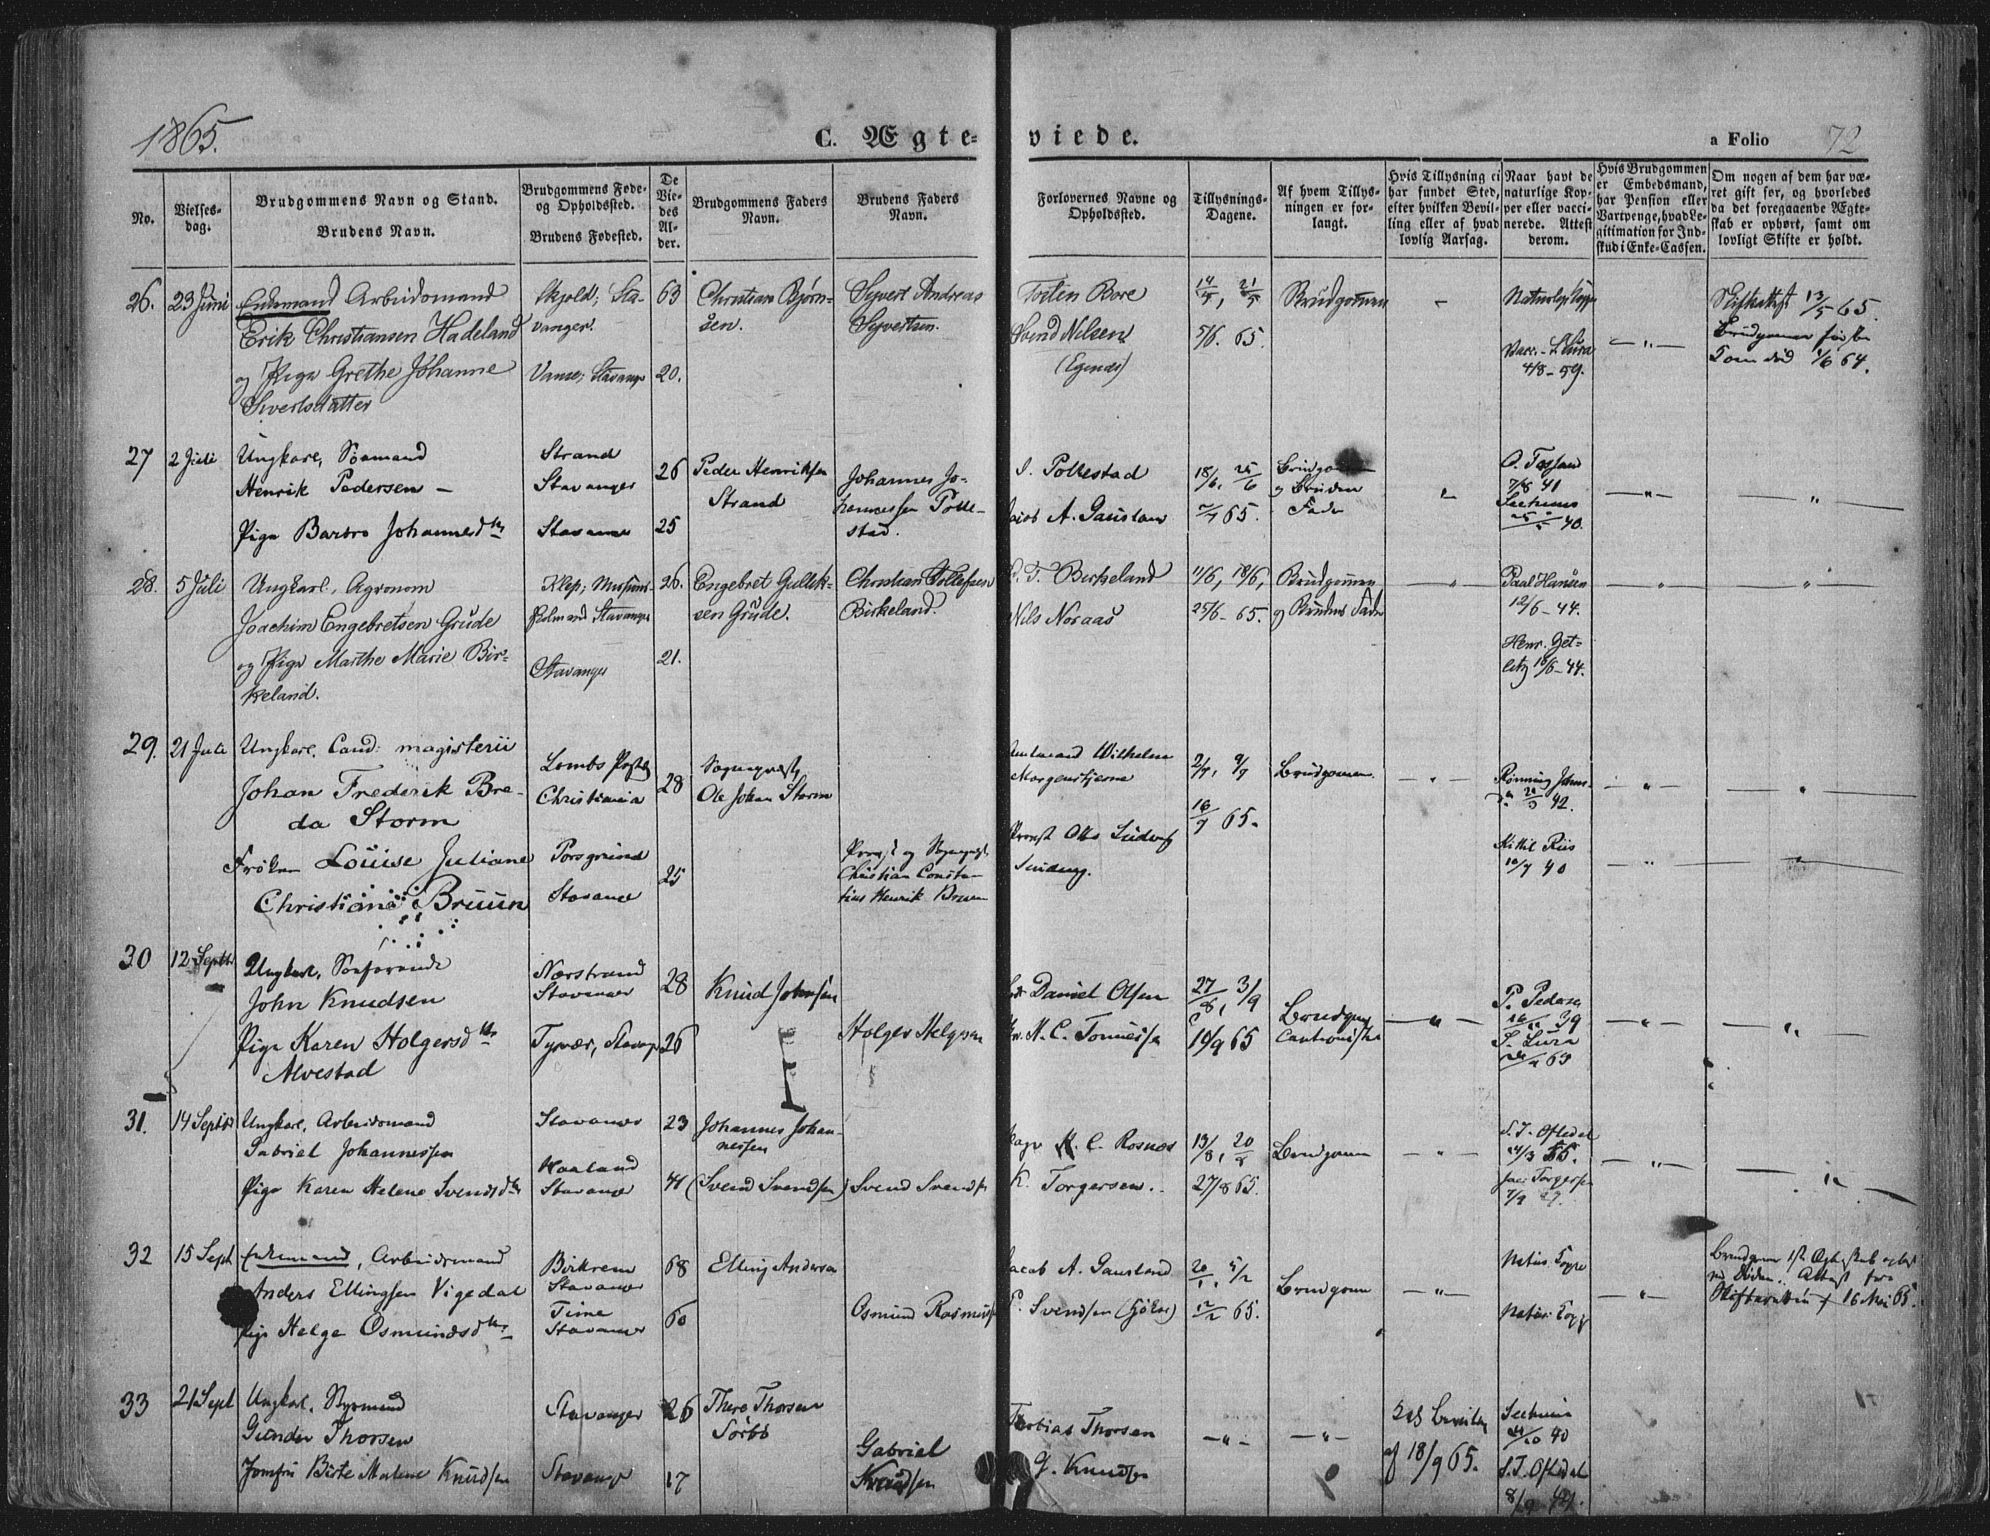 1865.
C. Ægteviede.
a Folio 72
No.
Vielses-
dag.
Brudgommens Navn og Stand.
Brudens Navn.
Brudgommens Føde-
og Opholdssted.
Brudens Fødested.
De
Vie-
des
Al-
der.
Brudgommens Faders
Navn.
Brudens Faders
Navn.
Forlovernes Navne og
Opholdssted.
Tillysnings-
Dagene.
Af hvem Tillys-
ningen er for-
langt.
Hvis Tillysning ei
har fundet Sted,
efter hvilken Bevil-
ling eller af hvad
lovlig Aarsag.
Naar havt de
naturlige Kop-
per eller vacci-
nerede. Attest
derom.
Hvis Brudgommen
er Embedsmand,
har Pension eller
Vartpenge, hvad Le-
gitimation for Ind-
skud i Enke-Cassen.
Om nogen af dem har væ-
ret gift før, og hvorledes
da det foregaaende Ægte-
skab er ophørt, samt om
lovligt Skifte er holdt.
26. 23 Juni
Enkemand Arbeidsmand
Erik Christiansen Hadeland
og Pige Grethe Johanne
Sivertsdatter
Skjold; Sta-
vanger.
Vanse; Stavanger
63
20.
Christian Bjørn-
sen.
Syvert Andreas
Syvertsen.
Torsten Bore
Svend Nilsen
(Egenæs)
14/5, 21/5
5/6. 65.
Brudgommen
Naturlige Kopper
Vacc. - L. Lura
4/8 - 59.
Skifteattest 13/5 65.
1/6 64.
27 2 Juli
Ungkarl, Sømand
Henrik Pedersen -
Pige Barbro Johannesdtr
Strand
Stavanger
Stavanger
26
25
Peder Henriksen
Strand
Johannes Jo-
hannessen Polle-
stad.
J. Pollestad
Jacob A. Gausland
18/6, 25/6
2/7 65.
Brudgommen
og Brudens
Fader
7/8 41
40
28. 5 Juli
Ungkarl, Agronom
Joachim Engebretsen Grude
og Pige Marthe Marie Bir-
keland.
Klep; Stavanger
Stavanger
26.
21.
Engebret Gullik-
sen Grude.
Christian Tollefsen
Birkeland.
T. Birkeland
Nils Noraas
11/6, 18/6,
25/6 - 65.
Brudgommen
og Brudens Fader
Paal Hansen
12/6 - 44.
Henr. Get-
litz 18/6 - 44.
29. 21 Juli
Ungkarl, Cand: magisterii
Johan Frederik Bre-
da Storm
Frøken Louise Juliane
Christiane Bruun
Lombs Præstg
Christiania
Porsgrund
Stavanger
28
25
Sognepræst
Ole Johan Storm
Provst og Sognepræst
Christian Constan-
tius Henrik Bruun
Amtmand Wilhelm
Morgenstjerne
Provst Otto Ludvig
Sinding.
2/7, 9/7
16/7 65.
Brudgommen
42.
Kittil Riis
10/7 40
30 12 Septbr
Ungkarl, Søfarende
John Knudsen
Pige Karen Holgersdtr
Alvestad
Nærstrand
Stavanger
Tysvær, Stavanger
28
26
Knud Johnsen
Holger Helgesen
Daniel Olsen
H. C. Tønnessen
27/8, 3/9
10/9 65
Brudgom
Cautionister
P. Pedersen
39
L. Lura
63
31. 14 Septbr
Ungkarl, Arbeidsmand
Gabriel Johannessen
Pige Karen Helene Svendsdtr
Stavanger
Haaland
Stavanger
23
41
Johannes Johan-
nessen
(Svend Svendsen)
Svend Svendsen
H. C. Rosnæs
K. Torgersen.
13/8, 20/8
27/8 65.
Brudgommen
S. T. Oftedal
14/3 55.
Jac. Torgersen
32 15 Sept
Enkemand, Arbeidsmand
Anders Ellingsen Vigedal
Pige Helge Osmundsdtr
Birkrem
Stavanger
Time
Stavanger
68
60
Elling Andersen
Osmund Rasmussen
Jacob A. Gausland
Svendsen
12/2 65.
Brudgommen
natur. Kopp
natur. Kopp
Attest fra
Skifteretten 16 Mai 65.
33 21 Sept
Ungkarl,
Gunder Thorsen
Jomfru Birte Malene Knudsen
Stavanger
Stavanger
26
17
Thore Thorsen
Sørbø
Gabriel
Knudsen
Tobias Thorsen
G. Knudsen
Bevilling
af 18/9 65.
40
S. T. Oftedal